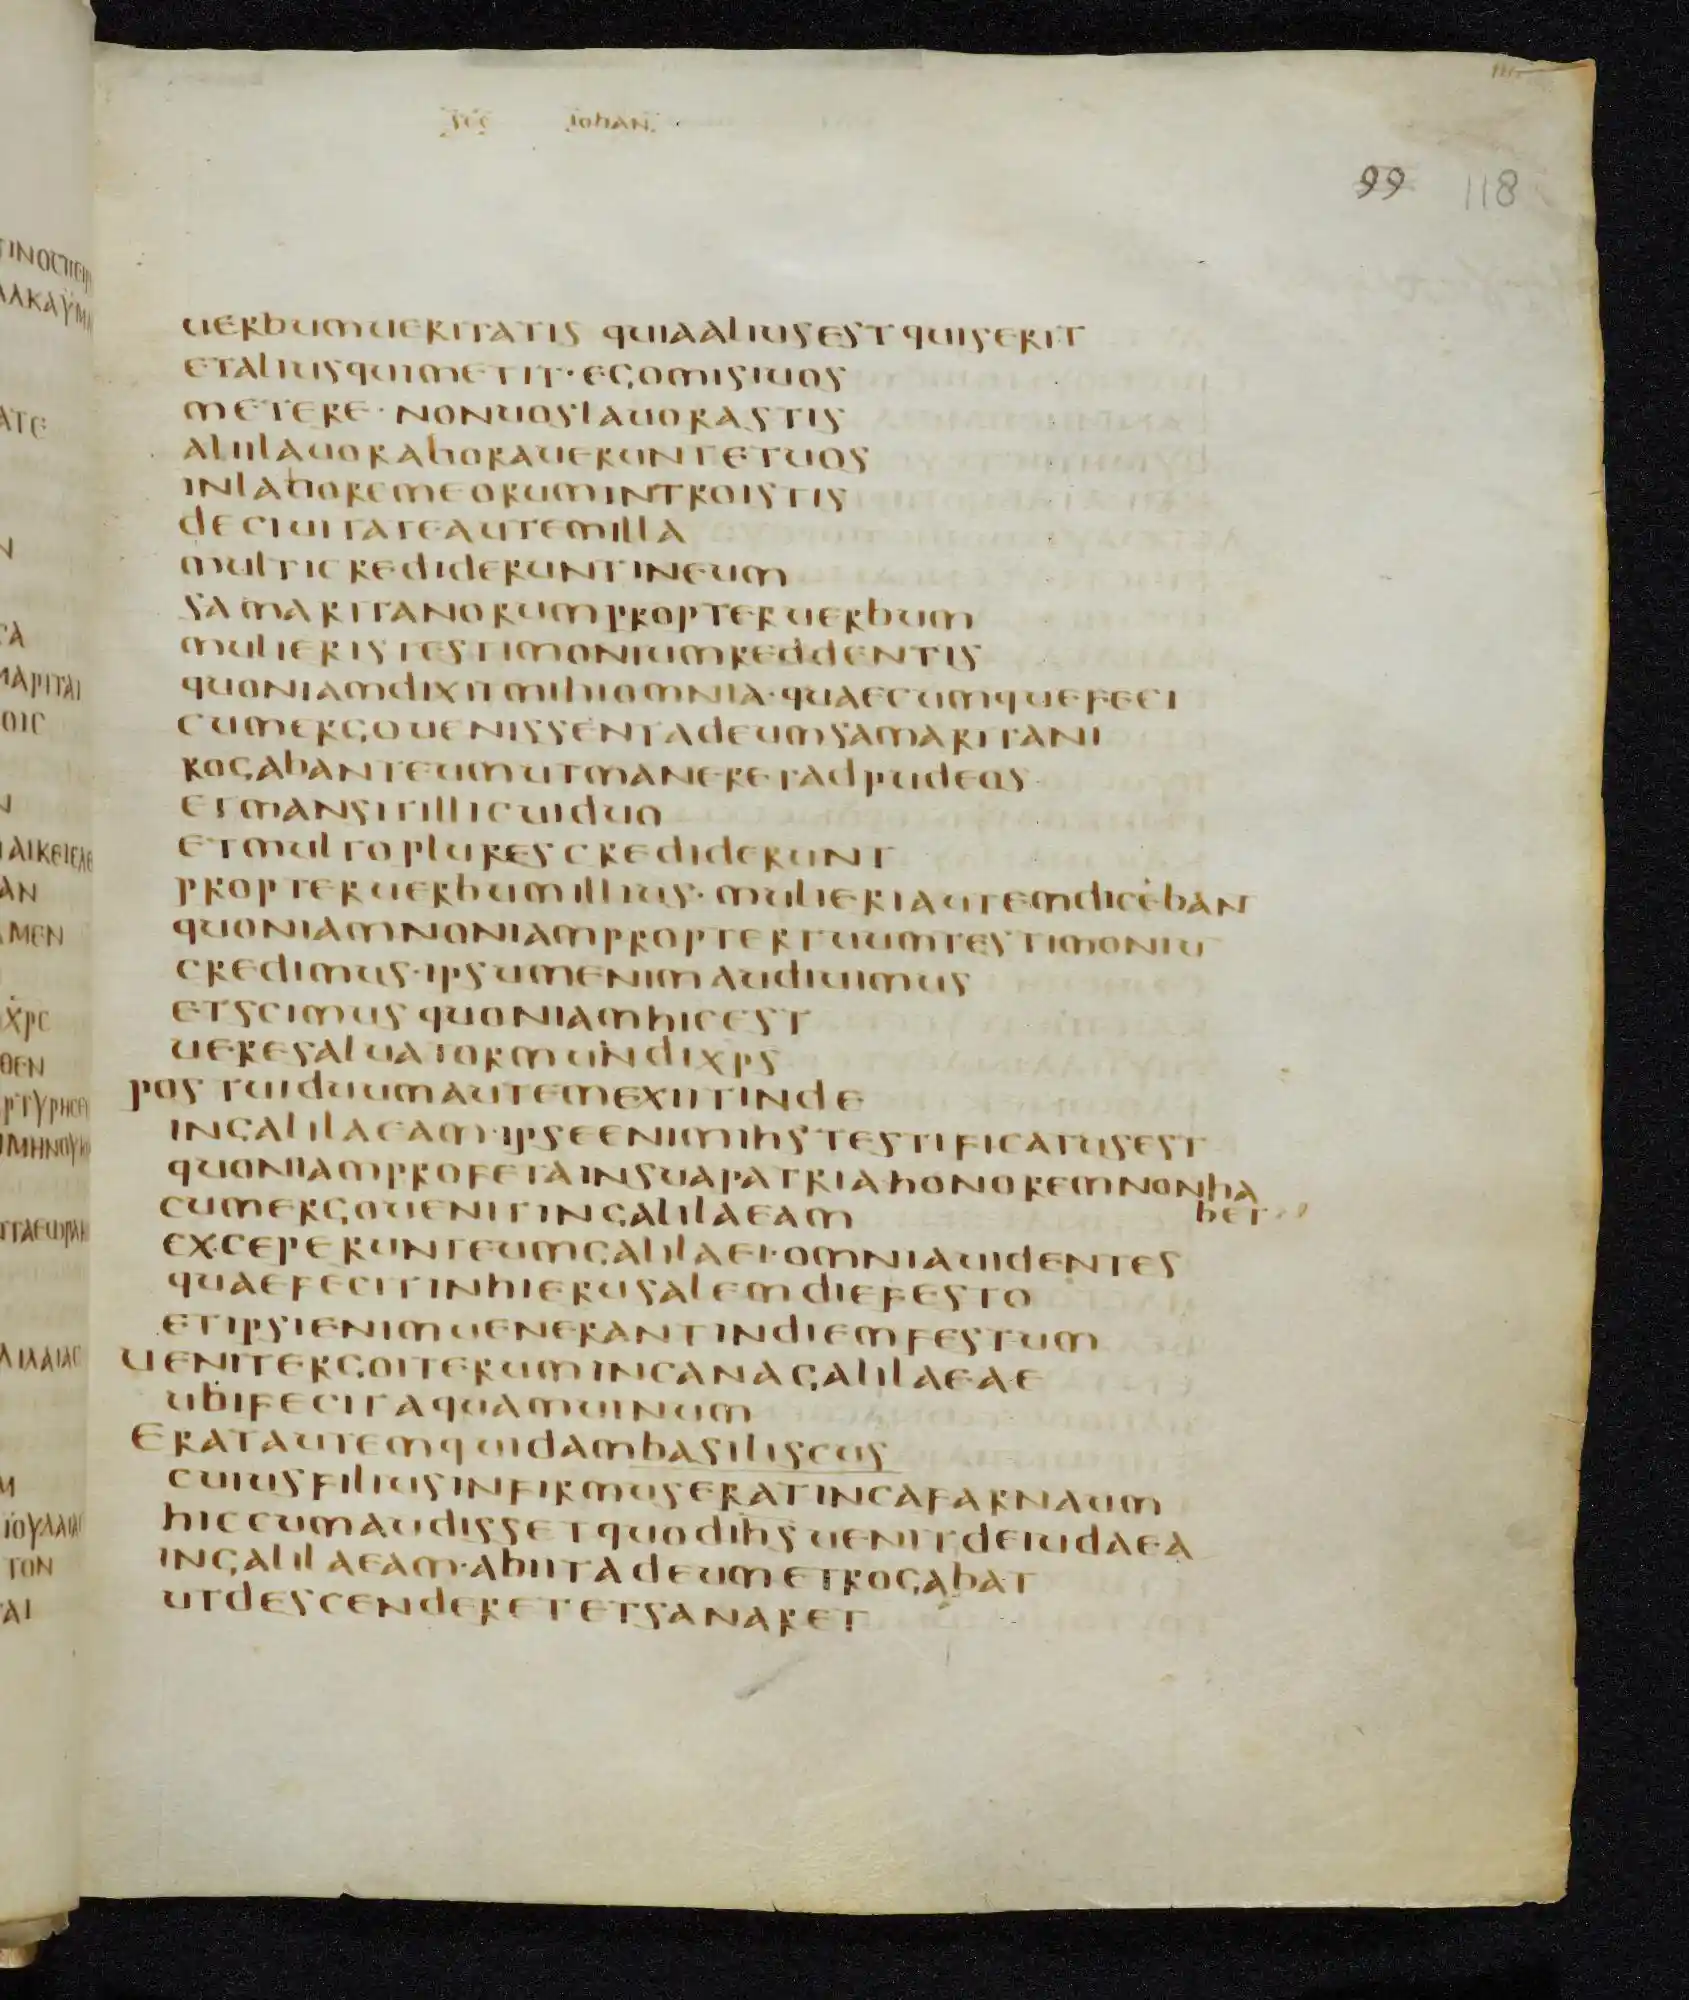 sec iohan
99 118
uerbumueritatis quiaaliusestquiserit
etaliusquimetit·egomisiuos
metere·nonuoslauorastis
aliilauorahoraueruntetuos
inlaboremeorumintroistis
deciuitateautemilla
multicredideruntineum
samaritanorumpropteruerbum
mulieristestimoniumreddentis
quoniamdixitmihiomnia·quaecumquefeci
cumergouenissentadeumsamaritani
rogabanteumutmaneretadpudeos
etmansitillicuiduo
etmultoplurescrediderunt
propteruerbumillius·mulieriautemdiceban
quoniamnoniamproptertuumtestimoniu
credimus·ipsumenimaudiuimus
etscimusquoniamhicest
ueresaluatormundixps
postuiduumautemexiitinde
ingalilaeam·ipseenimihstestificatusest
quoniamprofetainsuapatria·honoremnonha
bet
cumergouenitingalilaeam
exceperunteumgalilaei·omniauidentes
quaefecitinhierusalemdiefesto
etipsienimuenerantindiemfestum
uenitergoiterumincanagalilaeae
ubifecitaquamuinum
eratautemquidambasiliscus
cuiusfiliusinfirmuseratincafarnaum
hiccumaudissetquodihsuenitdeiudaea
ingalilaeam·abiitadeumetrogabat
utdescenderetetsanaret